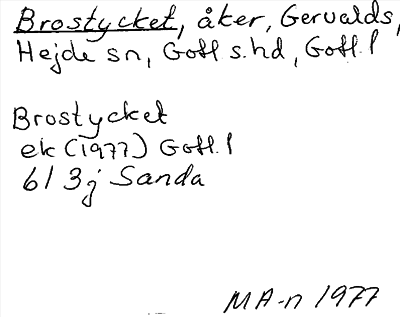 Brostycket, åker, Gervalds,
Hejde sn, Gotl s.hd, Gotl. l
Brostycket
ek (1977) Gotl. l
6I 3j Sanda
MA-n 1977